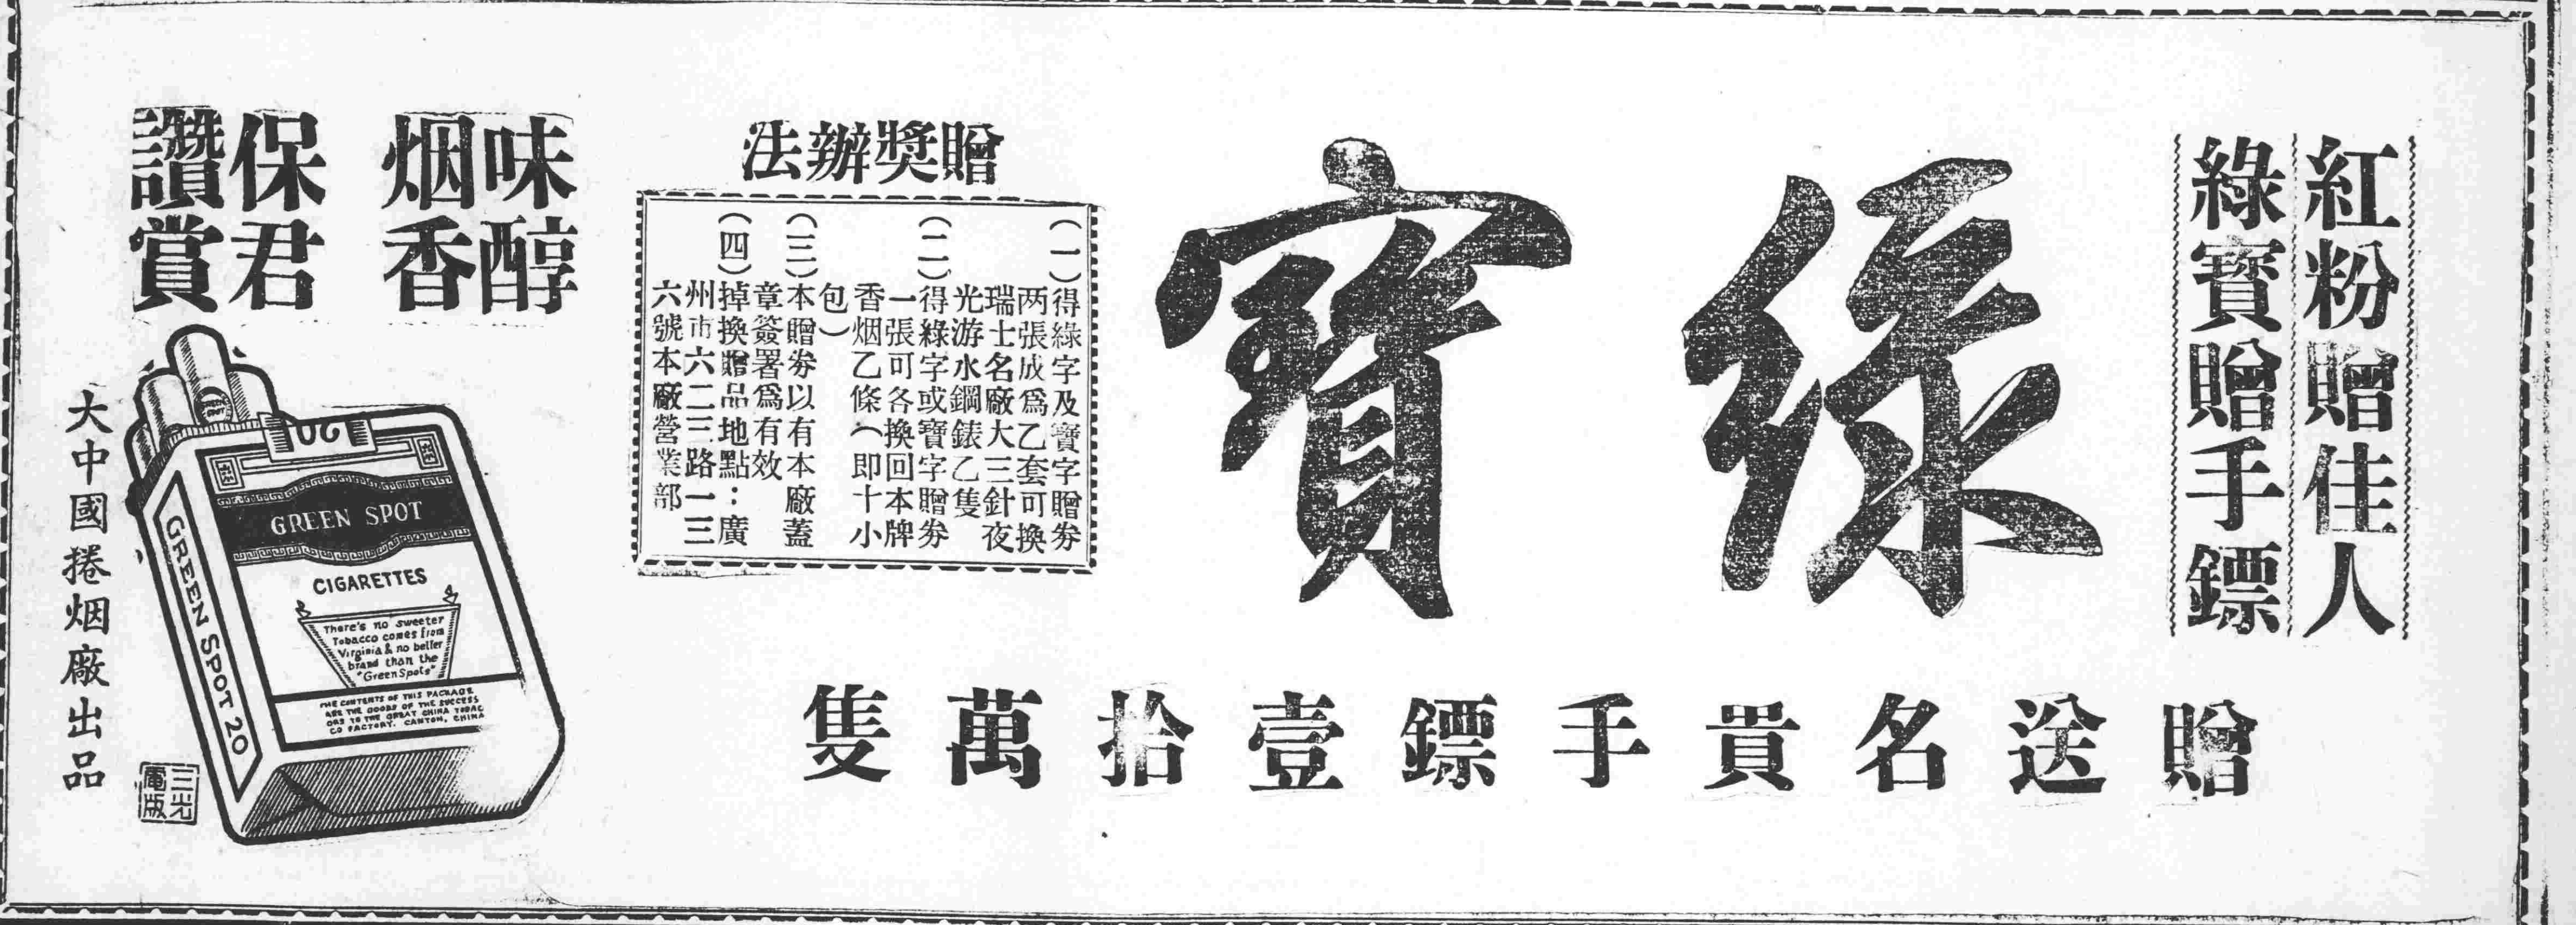 紅粉贈佳人
綠寶贈手鏢
綠寶
贈送名貴手鏢壹拾萬隻
贈獎辦法
（一）得綠字及寶字贈券
两張成爲乙套可換
瑞士名廠大三針夜
光游水鋼錶乙隻
（二）得綠字或寶字贈券
一張可各換回本牌
香烟乙條（即十小
包）
（三）本贈券以有本廠蓋
章簽署爲有效
（四）掉換贈品地點：廣
州市六二三路一三
六號本廠營業部
味醇
烟香
保君
讚賞
20
GREEN SPOT
GREEN SPOT
CIGARETTES
There's no sweeter
Tobacco comes from
Virginia & no better
brand than the
"Green Spots"
THE CONTENTS OF THIS PACKAGE
ARE THE GOODS OF THE SUCCESS
ORS TO THE GREAT CHINA TOBAC
CO FACTORY. CANTON, CHINA
GREEN SPOT 20
大中國捲烟廠出品
三光
電版